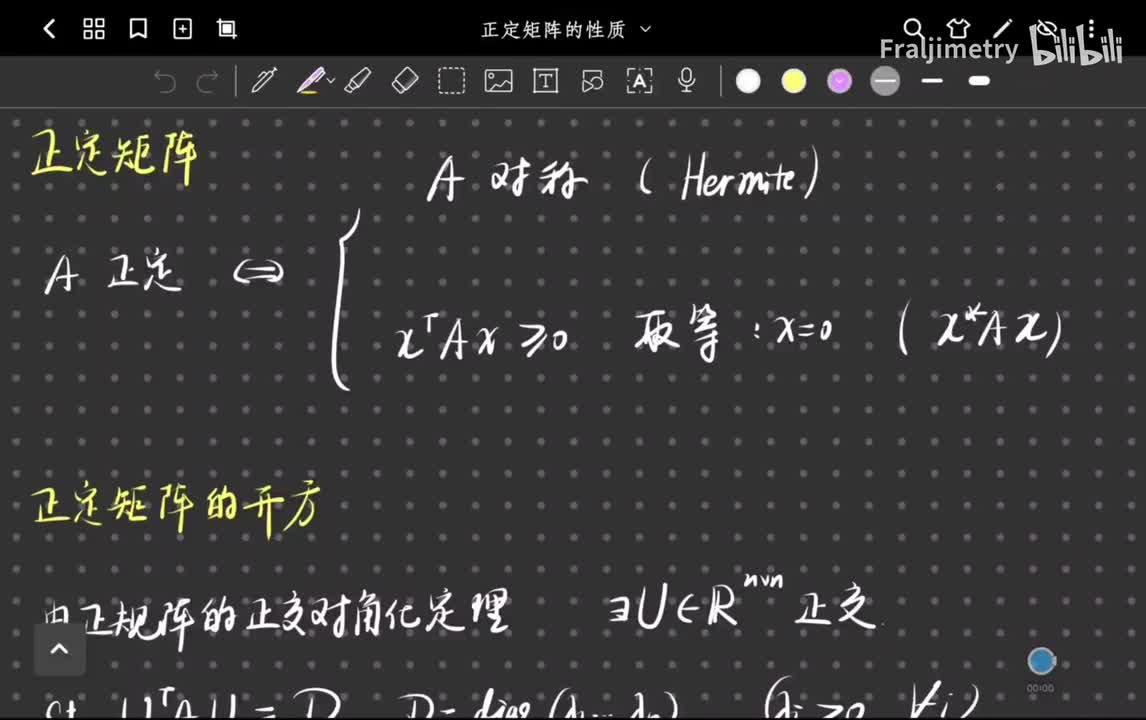 正定矩阵的性质
Fraljimetry bilibili
正定矩阵
A 对称 (Hermite)
A 正定 ⇔
xᵀAx ≥ 0 取等 : x=0 (x*Ax)
正定矩阵的开方
由正规阵的正交对角化定理 ∃U∈ℝⁿˣⁿ 正交
st. UᵀAU = D D = diag(λ₁…λₙ) (λᵢ ≥ 0 ∀i)
00:00